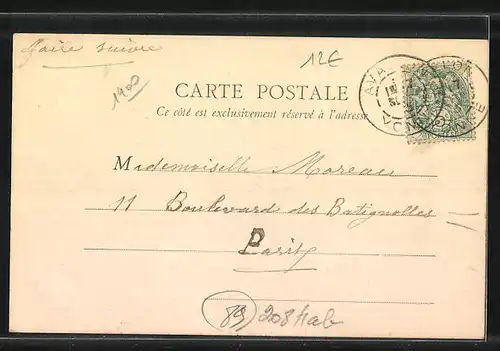 faire suivre
12€
1900
CARTE POSTALE
Ce côté est exclusivement réservé à l'adresse
Mademoiselle Moreau
11 Boulevard des Batignolles
Paris
89 208 Hab